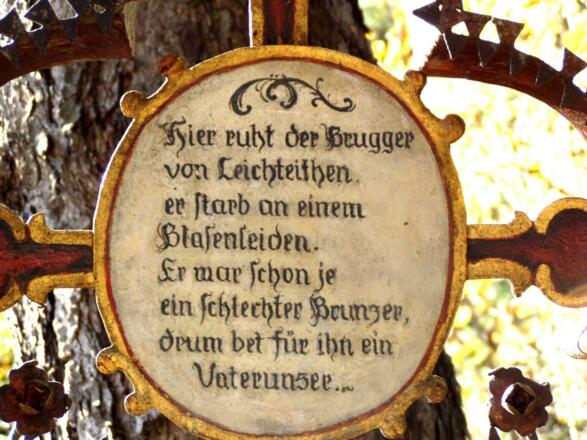 Hier ruht der Brugger
von Leichteithen.
er starb an einem
Blasenleiden.
Er war schon je
ein schlechter Brunzer,
drum bet für ihn ein
Vaterunser...